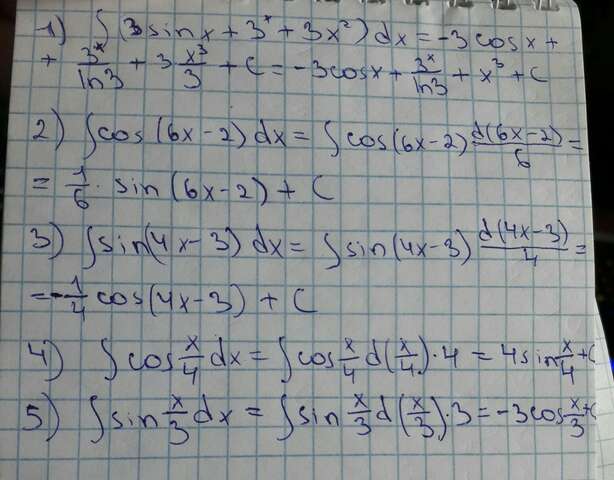 1) ∫(3sinx + 3^x + 3x^2)dx = -3cosx +
+ 3^x/ln3 + 3 x^3/3 + C = -3cosx + 3^x/ln3 + x^3 + C
2) ∫cos(6x-2)dx = ∫cos(6x-2) d(6x-2)/6 =
= 1/6 · sin(6x-2) + C
3) ∫sin(4x-3)dx = ∫sin(4x-3) d(4x-3)/4 =
= -1/4 cos(4x-3) + C
4) ∫cos x/4 dx = ∫cos x/4 d(x/4)·4 = 4sin x/4 + C
5) ∫sin x/3 dx = ∫sin x/3 d(x/3)·3 = -3cos x/3 + C